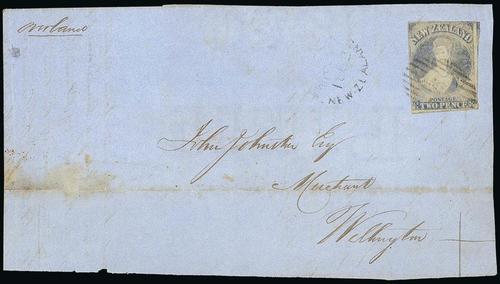 overland
NEW ZEALAND
POSTAGE
TWO PENCE
NEW-ZEALAN
John Johnston Esq
Merchant
Wellington